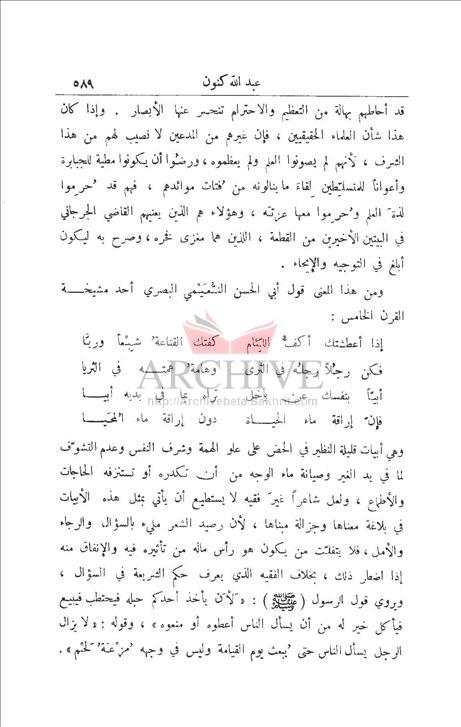 عبد الله كنون ٥٨٩
قد أحاطهم بهالة من التعظيم والاحترام تنحسر عنها الأبصار . وإذا كان
هذا شأن العلماء الحقيقيين ، فإن غيرهم من المدعين لا نصيب لهم من هذا
الشرف ، لأنهم لم يصونوا العلم ولم يعظموه ، ورضُوا أن يكونوا مطية للجبابرة
وأعواناً للمتسلِّطين لِقاءَ ما ينالونه من فُتات موائدهم ، فهم قد حُرموا
لذة العلم وحُرموا معها عزته ، وهؤلاء هم الذين يعنيهم القاضي الجرجاني
في البيتين الأخيرين من القطعة ، اللذين هما مغزى فخره ، وصرح به ليكون
أبلغ في التوجيه والإيحاء .
ومن هذا المعنى قول أبي الحسن النُّعَيْمي البصري أحد مشيخة
القرن الخامس :
إذا أعطشتك أكفُّ اللئام كفتك القناعةُ شِبْعاً وريَّا
فكن رجُلاً رجلُه في الثرى وهامةُ همته في الثريا
أبيّاً بنفسك عن باخل تراه بما في يديه أبيا
فإنّ إراقة ماء الحياة دون إراقة ماء المُحَيَّا
ARCHIVE
http://Archivebeta.Sakhrit.com
وهي أبيات قليلة النظير في الحض على علو الهمة وشرف النفس وعدم التشوّف
لما في يد الغير وصيانة ماء الوجه من أن تكدره أو تستنزفه الحاجات
والأطماع ، ولعل شاعراً غيرَ فقيه لا يستطيع أن يأتي بمثل هذه الأبيات
في بلاغة معناها وجزالة مبناها ، لأن رصيد الشعر مليء بالسؤال والرجاء
والأمل ، فلا يتفلّت من يكون هو رأس ماله من تأثيره فيه والإنفاق منه
إذا اضطر ذلك ، بخلاف الفقيه الذي يعرف حكم الشريعة في السؤال ،
ويروي قول الرسول (ﷺ) : « لَأَن يأخذ أحدكم حبله فيحتطب فيبيع
فيأكل خير له من أن يسأل الناس أعطوه أو منعوه » ، وقوله : « لا يزال
الرجل يسأل الناس حتى يُبعث يوم القيامة وليس في وجهه مُزْعَةُ لَحْم » .